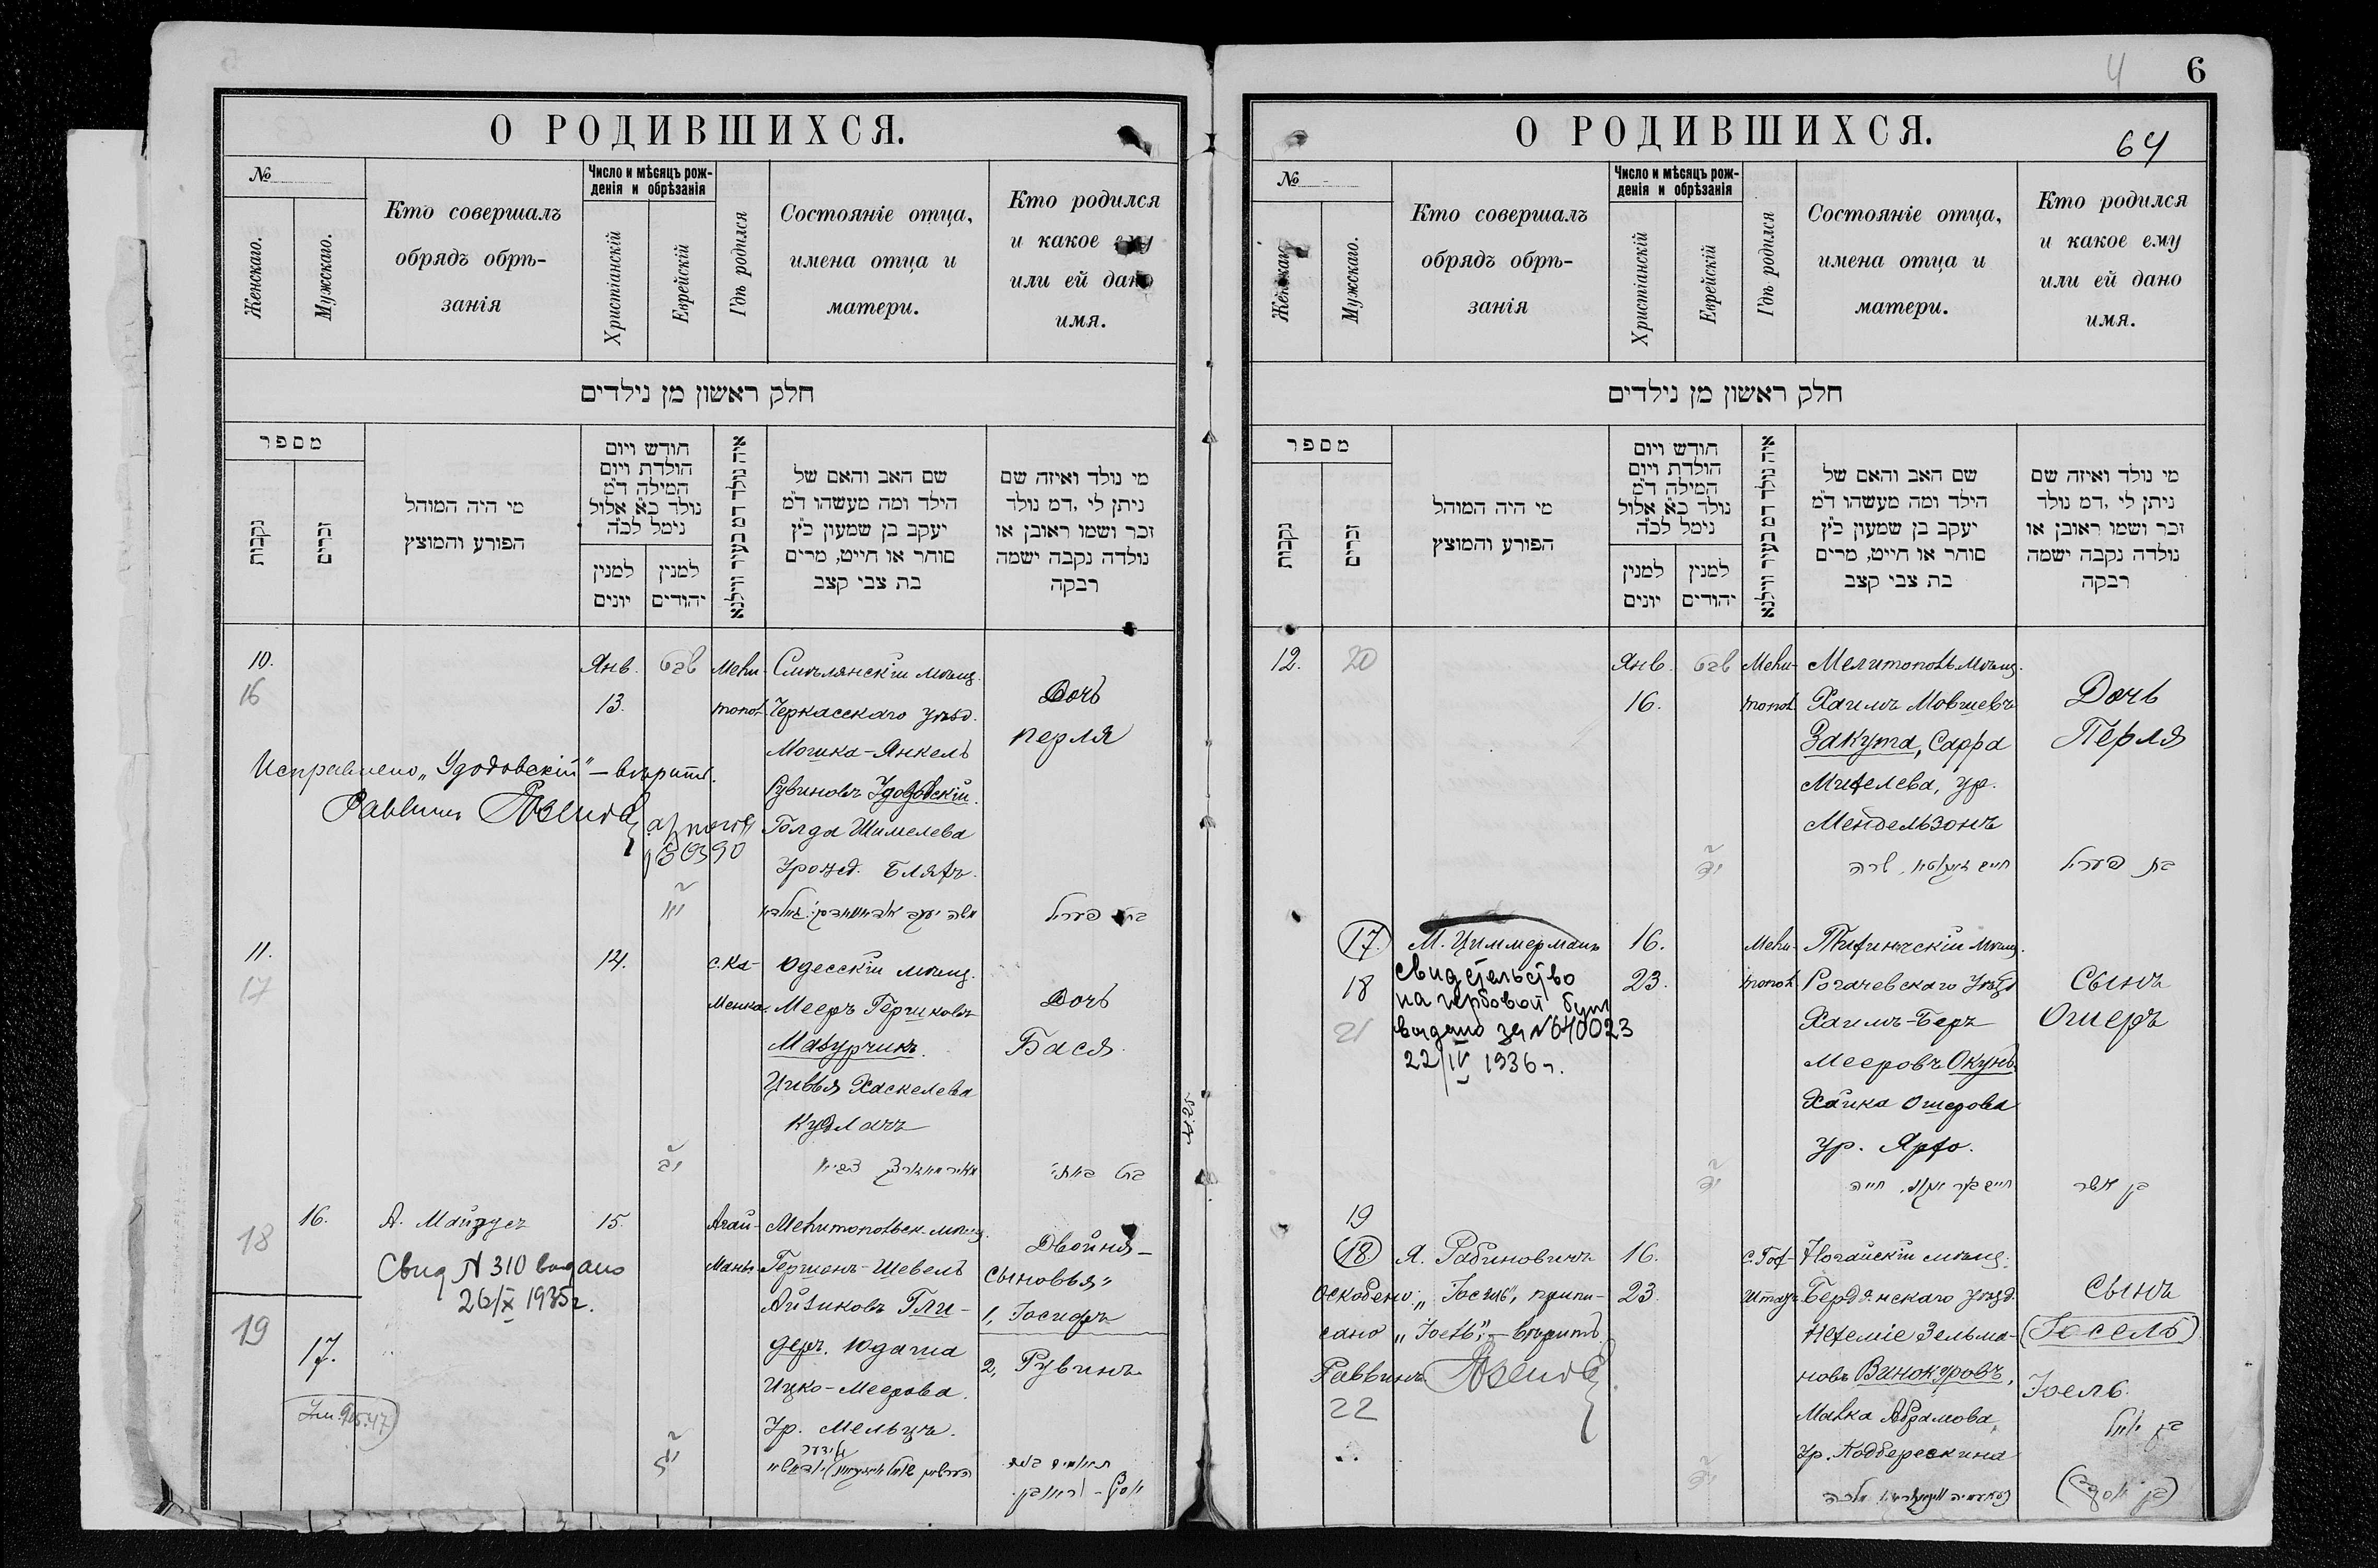 О РОДИВШИХСЯ.
№
Женскаго.
Мужскаго.
Кто совершалъ
обрядъ обрѣ-
занія
Число и мѣсяцъ рож-
денія и обрѣзанія
Христіанскій
Еврейскій
Гдѣ родился
Состояніе отца,
имена отца и
матери.
Кто родился
и какое ему
или ей дано
имя.
חלק ראשון מן נילדים
מספר
נקבות
זכרים
מי היה המוהל
הפורע והמוצץ
חודש ויום
הולדת ויום
המילה ד"מ
נולד כ"א אלול
נימל לכ"ה
למנין
יונים
למנין
יהודים
איה נולד דמ בעיר ווילנא
שם האב והאם של
הילד ומה מעשהו ד"מ
יעקב בן שמעון כ"ץ
סוחר או חייט, מרים
בת צבי קצב
מי נולד ואיזה שם
ניתן לי, דמ נולד
זכר ושמו ראובן או
נולדה נקבה ישמה
רבקה
10.
16
Янв.
13.
שבט
Мели-
топол.
Смѣлянскій мѣщ.
Черкасскаго уѣзд.
Мошка-Янкель
Рувиновъ Удодовскій.
Голда Шимелева
урожд. Бляхъ.
Дочь
Перля
Исправлено „Удодовскій" – вѣрить.
Раввинъ
11.
17
14.
с. Ка-
менка.
Одесскій мѣщ.
Мееръ Гершковъ
Мазурчикъ.
Цивья Хаскелева
Кудлачъ
Дочь
Бася.
16.
18
А. Майздех
15.
Агай-
маны
Мелитопольск. мѣщ.
Гершонъ-Шевель
Айзиковъ Гли-
деръ. Югаша
Ицко-Меерова.
Ур. Мельцъ.
Двойня –
Сыновья"
1, Іосифъ
2, Рувинъ
Свид № 310 выдано
26/X 1935г.
19
17.
6
4
64
О РОДИВШИХСЯ.
№
Женскаго.
Мужскаго.
Кто совершалъ
обрядъ обрѣ-
занія
Число и мѣсяцъ рож-
денія и обрѣзанія
Христіанскій
Еврейскій
Гдѣ родился
Состояніе отца,
имена отца и
матери.
Кто родился
и какое ему
или ей дано
имя.
חלק ראשון מן נילדים
מספר
נקבות
זכרים
מי היה המוהל
הפורע והמוצץ
חודש ויום
הולדת ויום
המילה ד"מ
נולד כ"א אלול
נימל לכ"ה
למנין
יונים
למנין
יהודים
איה נולד דמ בעיר ווילנא
שם האב והאם של
הילד ומה מעשהו ד"מ
יעקב בן שמעון כ"ץ
סוחר או חייט, מרים
בת צבי קצב
מי נולד ואיזה שם
ניתן לי, דמ נולד
זכר ושמו ראובן או
נולדה נקבה ישמה
רבקה
12.
20
Янв.
16.
שבט
Мели-
топол.
Мелитополь. мѣщ.
Хаимъ Мовшевъ
Закута, Сарра
Михелева, ур.
Мендельзонъ
Дочь
Перля
בת פערל
17.
18
21
М. Циммерманъ
16.
23.
Мели-
топол.
Тихиничскій мѣщ.
Рогачевскаго уѣзд
Хаимъ-Беръ
Мееровъ Окунь.
Хайка Ошерова
ур. Архо.
Сынъ
Ошеръ
בן אשר
свидетельство
на гербовой бум
выдано за № 040023
22/IV 1936 г.
19
18.
22
Я. Рабиновичъ
16.
23.
с. Гоф-
штал
Ногайскій мѣщ.
Бердянскаго уѣзд.
Нехеміе Зельма-
новъ Винокуровъ,
Малка Абрамова,
Ур. Подберезкина
Сынъ
(Іосель)
Іоель.
בן יואל
(בן יוסף)
Оскоблено: „Іосель", припи-
сано „Іоель", – вѣрить.
Раввинъ